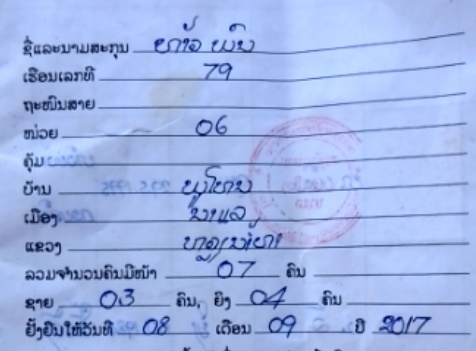 ຊື່ແລະນາມສະກຸນ ທ້າວ ພົນ
ເຮືອນເລກທີ 79
ຖະໜົນສາຍ
ໜ່ວຍ 06
ຄຸ້ມ
ບ້ານ
ເມືອງ ນາແລ
ແຂວງ ຫຼວງນ້ຳທາ
ລວມຈຳນວນຄົນມີໜ້າ 07 ຄົນ
ຊາຍ 03 ຄົນ, ຍິງ 04 ຄົນ
ຢັ້ງຢືນໃຫ້ວັນທີ 08 ເດືອນ 09 ປີ 2017